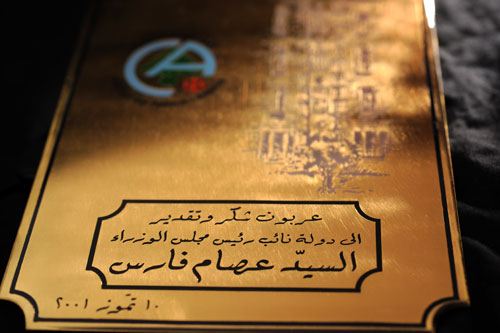 عربون شكر وتقدير
الى دولة نائب رئيس مجلس الوزراء
السيّد عصام فارس
١٠ تمّوز ٢٠٠١